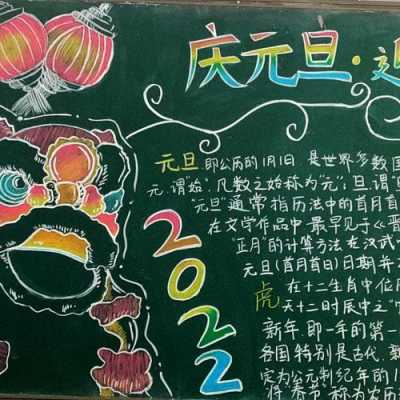 庆元旦·迎
元旦,即公历的1月1日,是世界多数国
元,谓"始",凡数之始称为"元";旦,谓"
"元旦"通常指历法中的首月首
在文学作品中最早见于《晋
"正月"的计算方法,在汉武
元旦(首月首日)日期并
2022
虎 在十二生肖中位
天十二时辰中之"
新年,即一年的第一
各国特别是古代,新
定为公元制纪年的1
将春节称为农历